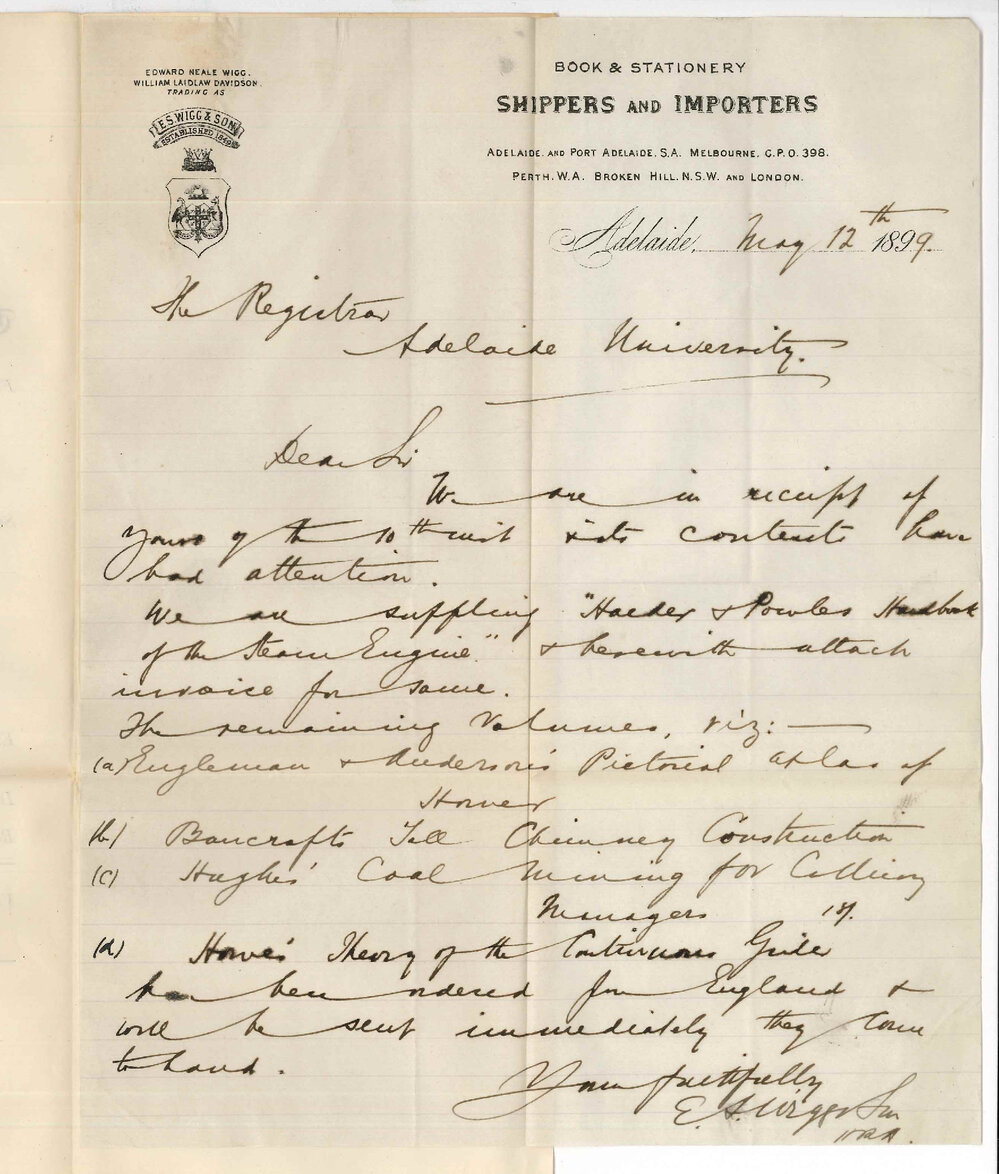 EDWARD NEALE WIGG.
WILLIAM LAIDLAW DAVIDSON.
TRADING AS
E.S. WIGG & SON
ESTABLISHED 1849
BOOK & STATIONERY
SHIPPERS AND IMPORTERS
ADELAIDE. AND PORT ADELAIDE, S.A. MELBOURNE, G.P.O. 398.
PERTH. W.A. BROKEN HILL. N.S.W. AND LONDON.
Adelaide, May 12th 1899.
The Registrar
Adelaide University.
Dear Sir
We are in receipt of
yours of the 10th inst & its contents have
had attention.
We are suppling "Haeder & Powles Handbook
of the Steam Engine" & herewith attach
invoice for same.
The remaining Volumes, viz:—
(a) Engleman & Anderson's Pictorial Atlas of
Homer
(b) Bancrofts Tall Chimney Construction
(c) Hughes' Coal Mining for Colliery
Managers 18/.
(d) Howe's Theory of the Continuous Girder
have been ordered from England &
will be sent immediately they come
to hand.
Yours faithfully
E. S. Wigg & Son